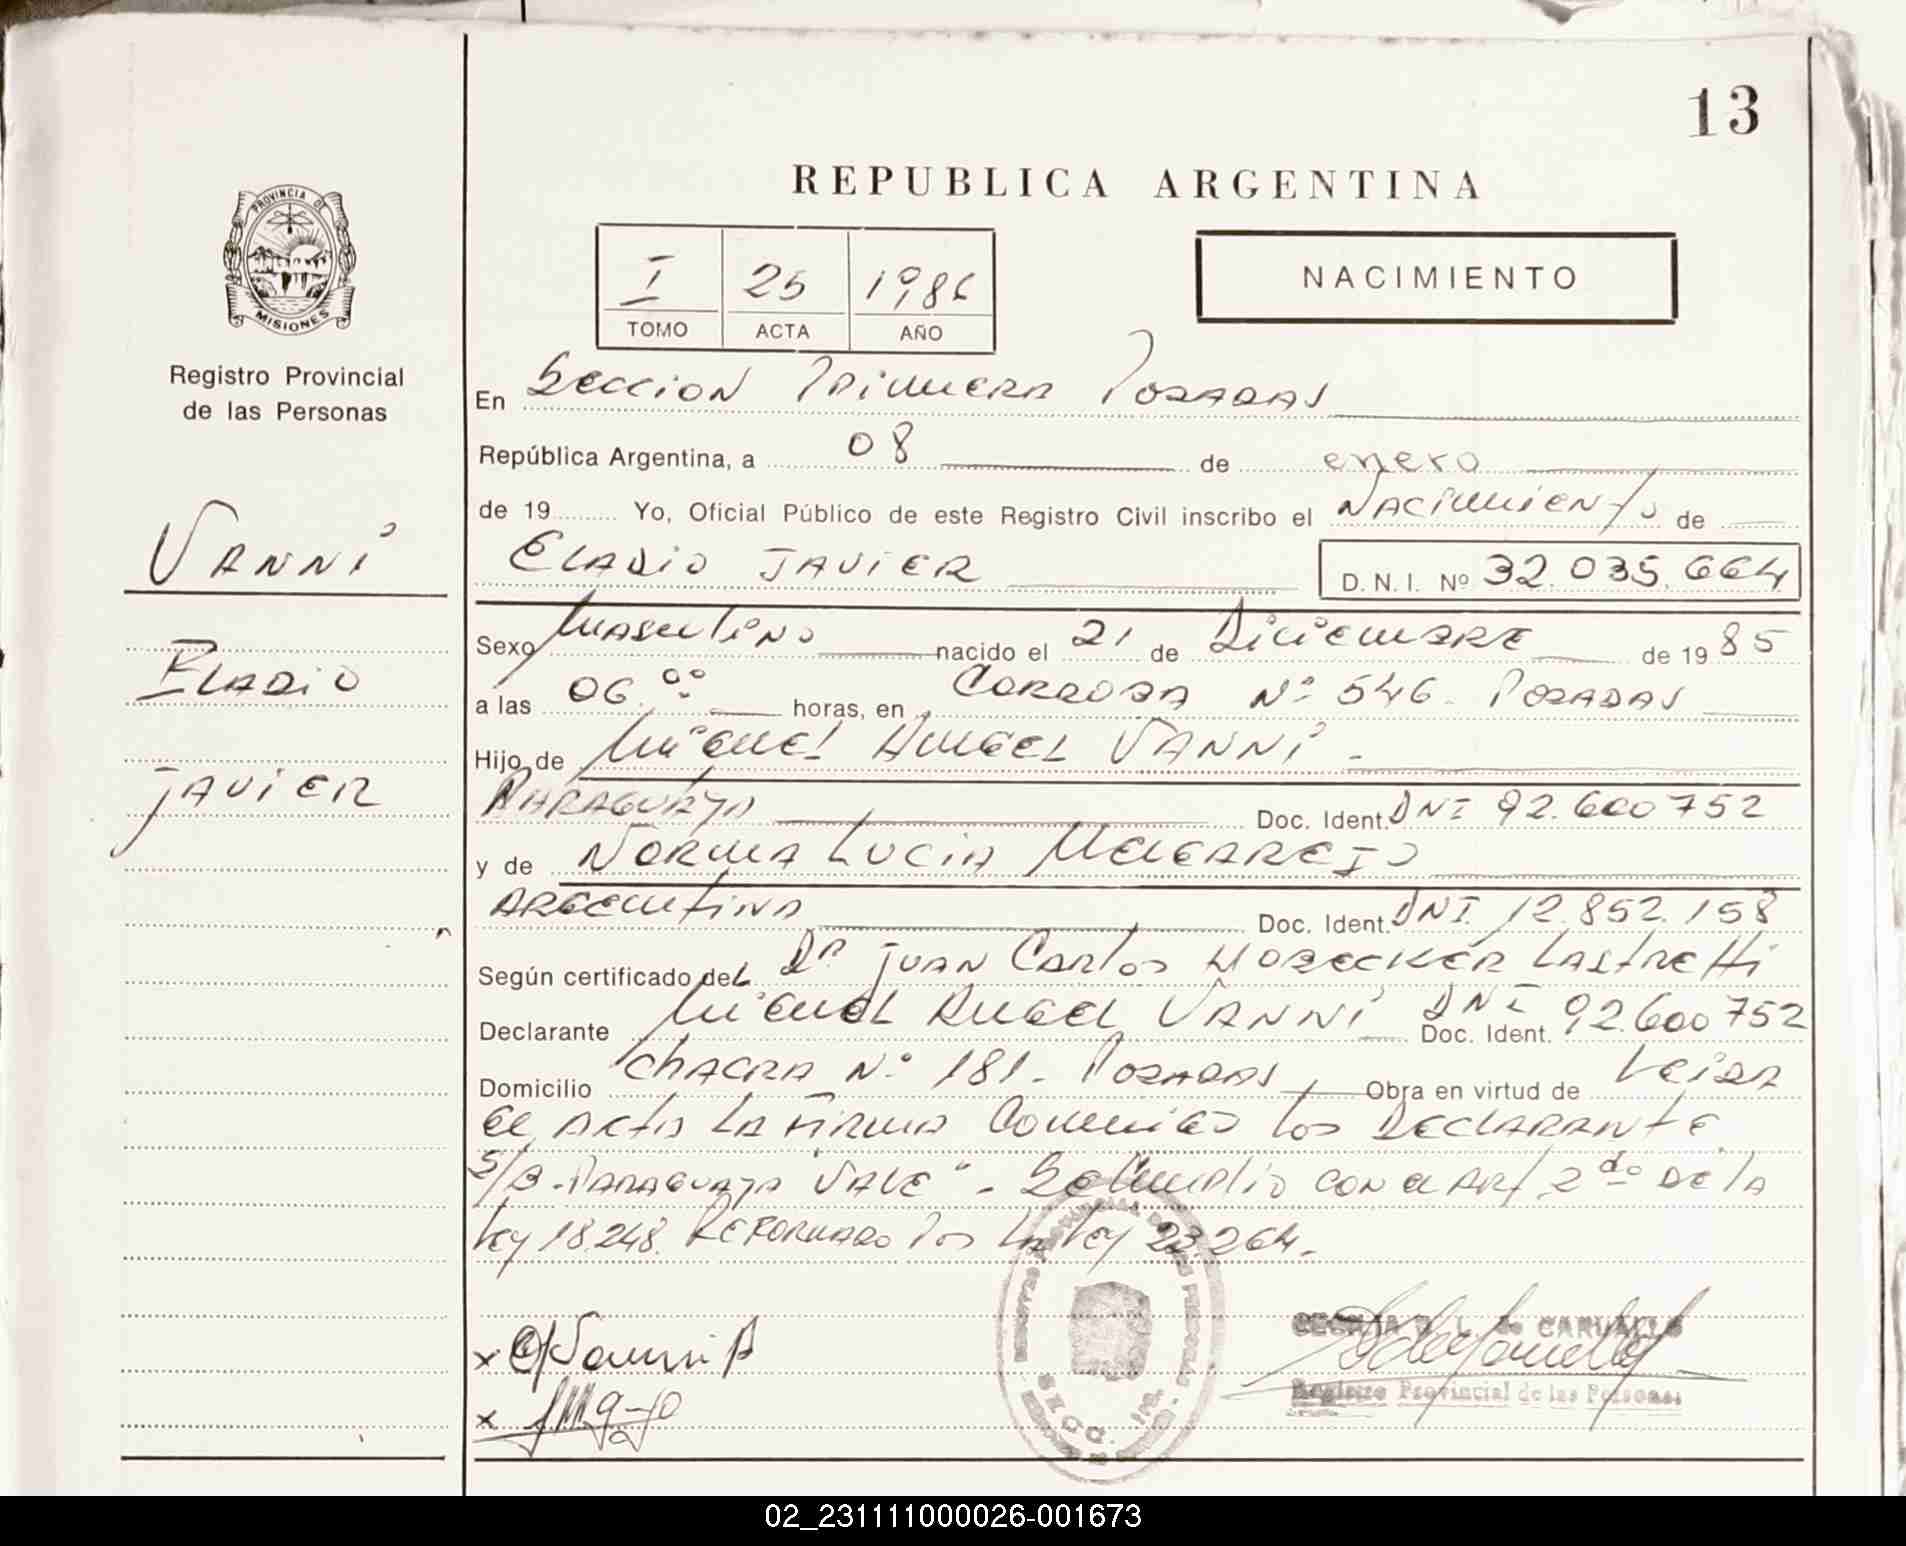 13
REPUBLICA ARGENTINA
PROVINCIA DE
MISIONES
Registro Provincial
de las Personas
I 25 1986
TOMO ACTA AÑO
NACIMIENTO
En Seccion Primera Posadas
República Argentina, a 08 de enero
de 19 Yo, Oficial Público de este Registro Civil inscribo el Nacimiento de
Vanni
Eladio Javier D.N.I. Nº 32.035.664
Sexo Masculino nacido el 21 de Diciembre de 1985
Eladio
a las 06.00 horas, en Cordoba Nº 546. Posadas
Hijo de Miguel Angel Vanni -
Javier
Paraguaya Doc. Ident. DNI 92.600752
y de Norma Lucia Melgarejo
Argentina Doc. Ident. DNI. 12.852.158
Según certificado del Dr Juan Carlos Lastretti
Declarante Miguel Angel Vanni Doc. Ident. DNI 92.600752
Domicilio Chacra Nº 181. Posadas Obra en virtud de Leida
el Acta la firma conmigo los Declarante
S/B. Paraguaya "Vale" - Se cumplio con el Art 2do de la
Ley 18.248. Reformado por la Ley 23.264.
x Vanni A
x
SECC. 1ra.
CECILIA L. de CARVALLO
Registro Provincial de las Personas
02_231111000026-001673